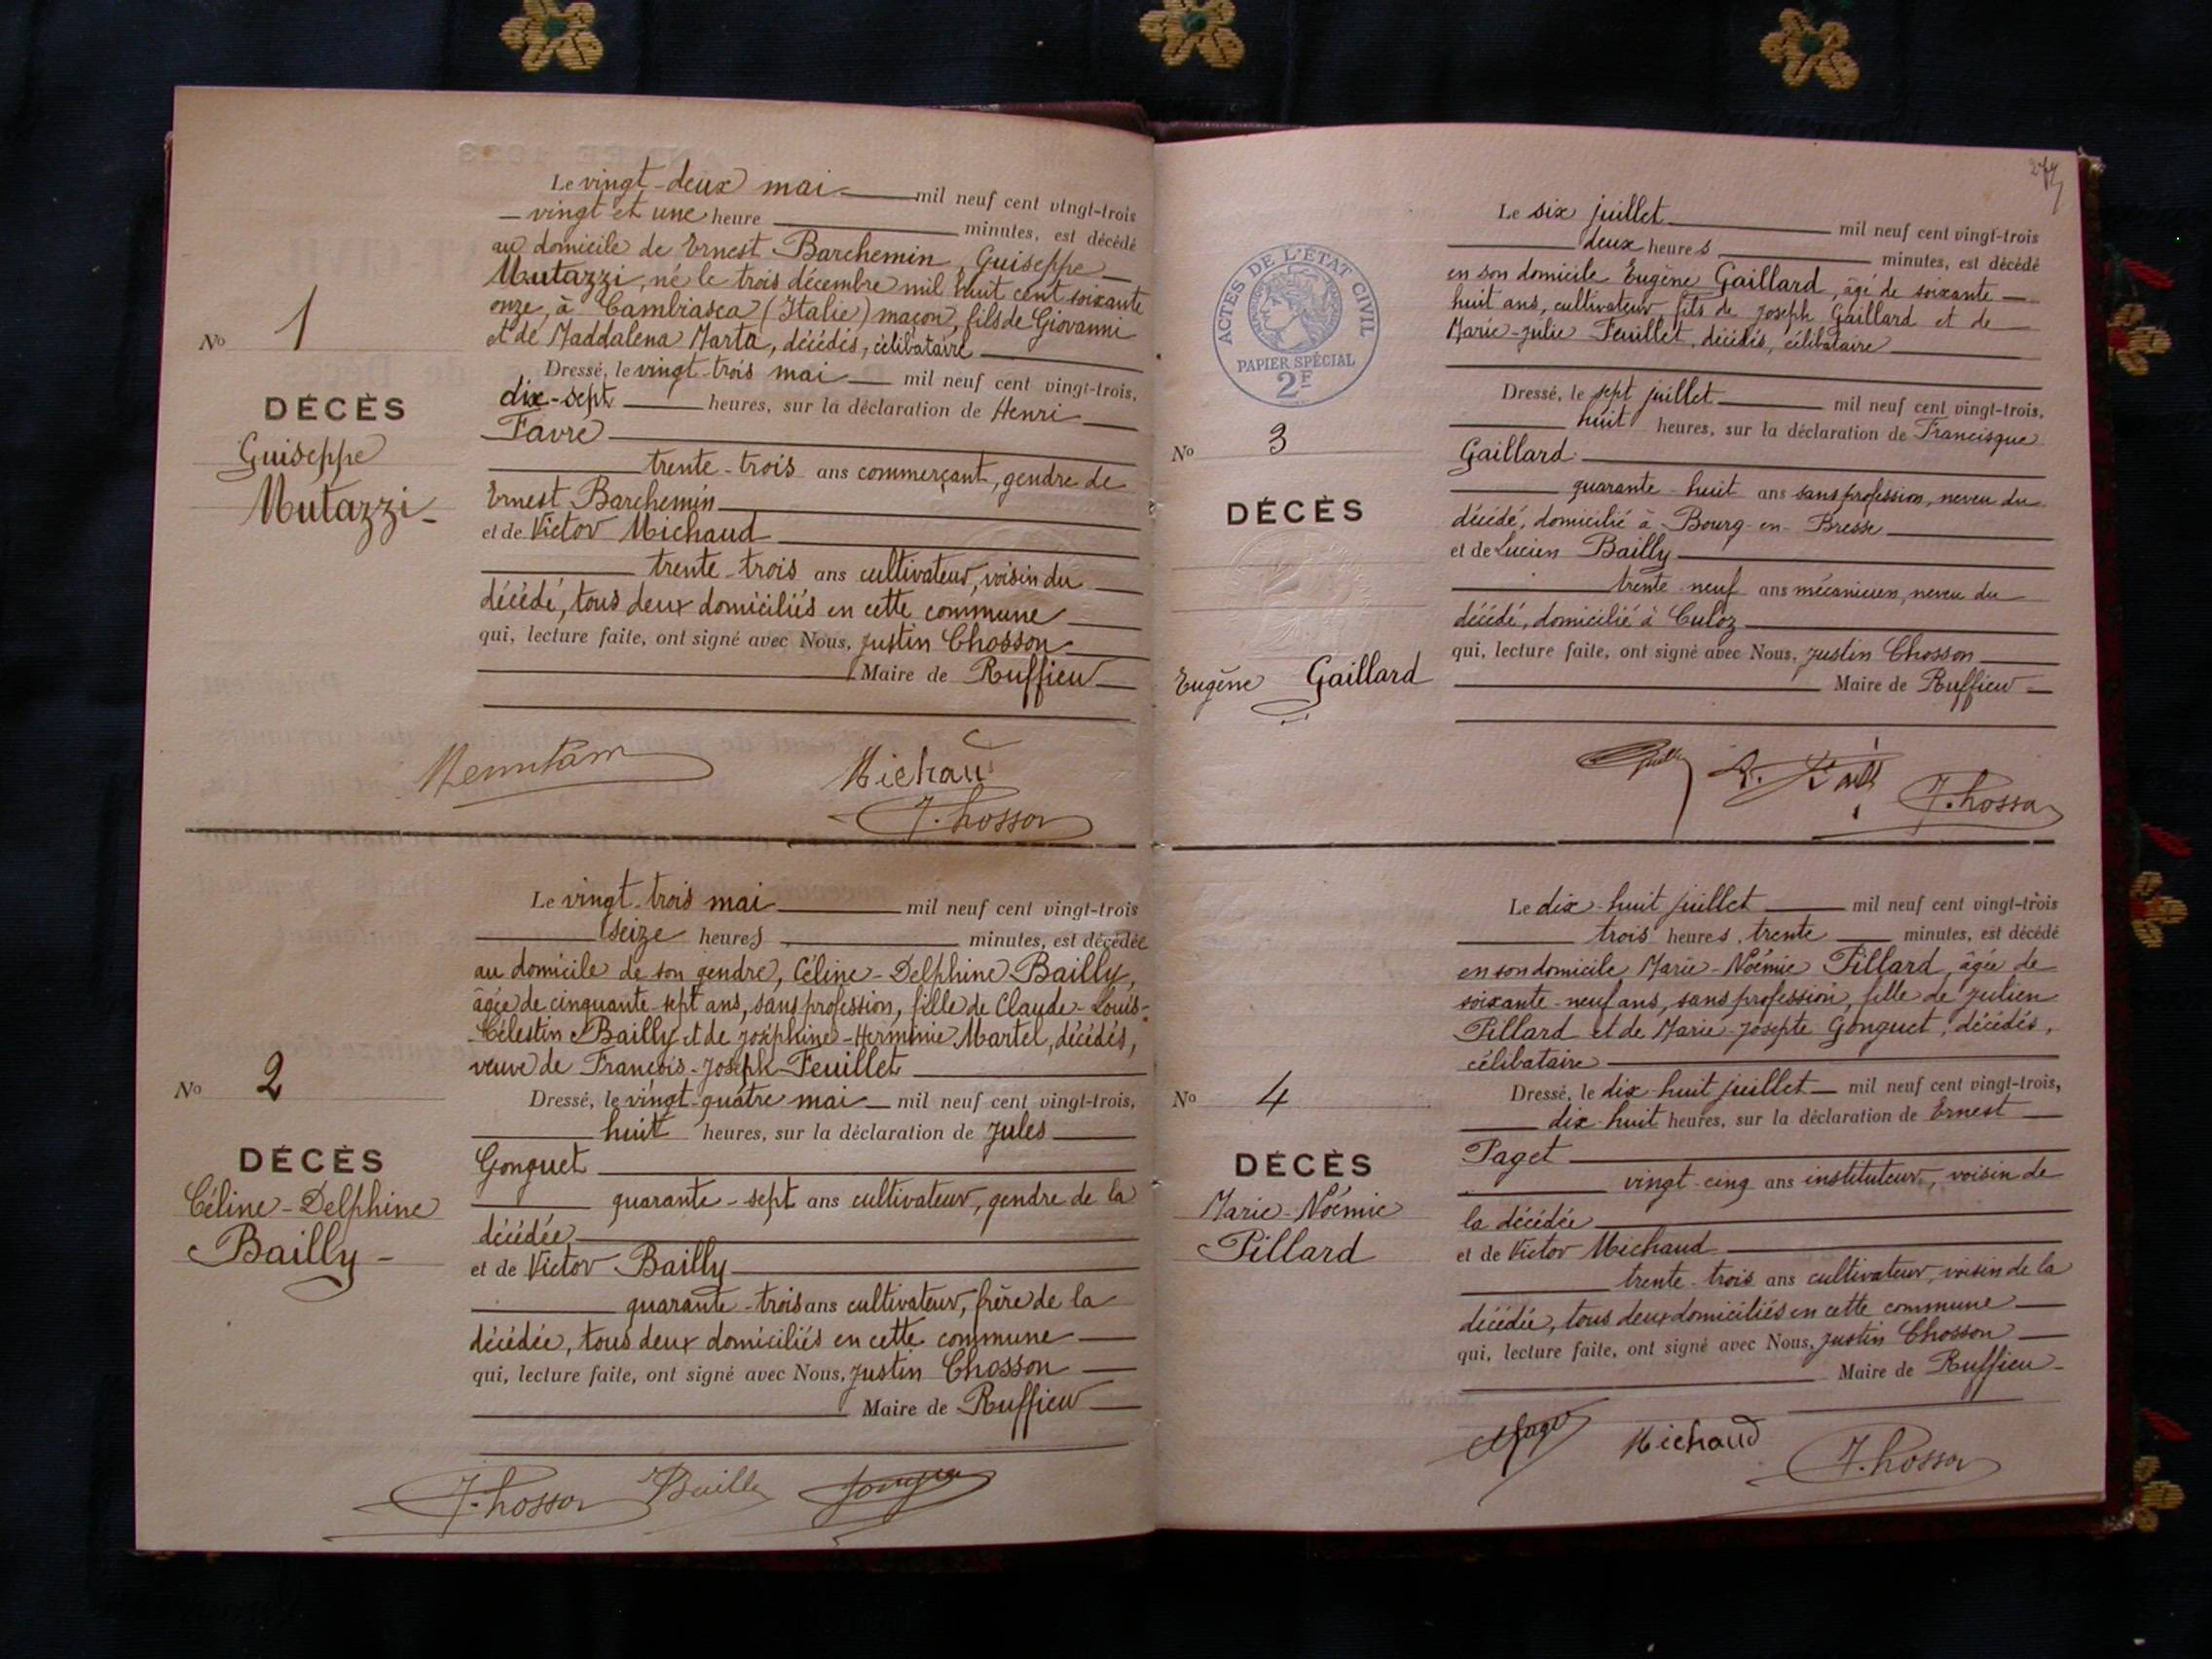 Le vingt-deux mai mil neuf cent vingt-trois
vingt et une heure minutes, est décédé
au domicile de Ernest Barchemin, Guiseppe
Mutazzi, né le trois décembre mil huit cent soixante
onze, à Cambiasca (Italie) maçon, fils de Giovanni
et de Maddalena Marta, décédés, célibataire
Nº 1
Dressé, le vingt-trois mai mil neuf cent vingt-trois,
DÉCÈS
dix-sept heures, sur la déclaration de Henri
Favre
Guiseppe
Mutazzi
trente-trois ans commerçant, gendre de
Ernest Barchemin
et de Victor Michaud
trente-trois ans cultivateur, voisin du
décédé, tous deux domiciliés en cette commune
qui, lecture faite, ont signé avec Nous, Justin Chosson
Maire de Ruffieu
Michaud
J. Chosson
Le vingt-trois mai mil neuf cent vingt-trois
seize heures minutes, est décédée
au domicile de son gendre, Céline-Delphine Bailly,
âgée de cinquante-sept ans, sans profession, fille de Claude-Louis-
Célestin Bailly et de Joséphine-Herminie Martel, décédés,
veuve de François-Joseph Feuillet
Nº 2
Dressé, le vingt-quatre mai mil neuf cent vingt-trois,
huit heures, sur la déclaration de Jules
DÉCÈS
Céline-Delphine
Bailly
Gonguet
quarante-sept ans cultivateur, gendre de la
décédée
et de Victor Bailly
quarante-trois ans cultivateur, frère de la
décédée, tous deux domiciliés en cette commune
qui, lecture faite, ont signé avec Nous, Justin Chosson
Maire de Ruffieu
J. Chosson Bailly
ACTES DE L'ÉTAT CIVIL
PAPIER SPÉCIAL
2F
Le six juillet mil neuf cent vingt-trois
deux heures minutes, est décédé
en son domicile Eugène Gaillard, âgé de soixante
huit ans, cultivateur, fils de Joseph Gaillard et de
Marie-Julie Feuillet, décédés, célibataire
Dressé, le sept juillet mil neuf cent vingt-trois,
huit heures, sur la déclaration de Francisque
Nº 3
Gaillard
DÉCÈS
quarante-huit ans sans profession, neveu du
décédé, domicilié à Bourg-en-Bresse
et de Lucien Bailly
trente-neuf ans mécanicien, neveu du
décédé, domicilié à Culoz
Eugène Gaillard
qui, lecture faite, ont signé avec Nous, Justin Chosson
Maire de Ruffieu
J. Chosson
Le dix-huit juillet mil neuf cent vingt-trois
trois heures, trente minutes, est décédé
en son domicile Marie-Noémie Pillard, âgée de
soixante-neuf ans, sans profession, fille de Julien
Pillard et de Marie-Josepte Gonguet, décédés,
célibataire
Nº 4
Dressé, le dix-huit juillet mil neuf cent vingt-trois,
dix-huit heures, sur la déclaration de Ernest
DÉCÈS
Marie-Noémie
Pillard
Paget
vingt-cinq ans instituteur, voisin de
la décédée
et de Victor Michaud
trente-trois ans cultivateur, voisin de la
décédée, tous deux domiciliés en cette commune
qui, lecture faite, ont signé avec Nous, Justin Chosson
Maire de Ruffieu
Michaud J. Chosson